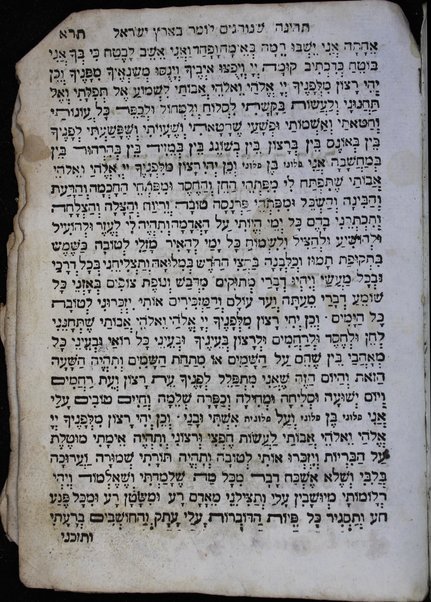 תחינה שנוהגים לומר בארץ ישראל תרא
אחריה אני ישבו רמה באימה ופחד ואני אשב לבטח כי בך אני
בוטח כדכתיב קומה יי ויפוצו אויביך וינוסו משנאיך מפניך וכן
יהי רצון מלפניך יי אלהי ואלהי אבותי לשמוע אל תפלתי ואל
תחנוני ולעשות בקשתי לסלוח ולמחול ולכפר כל עונותי
וחטאתי ואשמותי ופשעי שחטאתי ושעויתי ושפשעתי לפניך
בין באונס בין ברצון בין בשוגג בין במזיד בין בהרהור בין
במחשבה אני פלוני בן פלוני וכן יהי רצון מלפניך יי אלהי ואלהי
אבותי שתפתח לי מפתחי החן והחסד ומפתחי החכמה והדעת
והבינה והשכל ומפתחי פרנסה טובה וריוח והצלה והצלחה
ותכתרני בהם כל ימי היותי על האדמה ותהיה לי לעזר ולהועיל
ולהושיע ולהציל ולשמוח כל ימי להאיר מזלי לטובה כשמש
בתקופת תמוז וכלבנה בחצי החדש במלואה ותצליחני בכל דרכי
ובכל מעשי ויהיו דברי מתוקים מדבש ונופת צופים באזני כל
שומע דברי מעתה ועד עולם והמזכירים אותי יזכרוני לטובה
כל הימים וכן יהי רצון מלפניך יי אלהי ואלהי אבותי שתתנני
לחן ולחסד ולרחמים ולרצון בעיניך ובעיני כל רואי ובעיני כל
מאהבי בין שהם על השמים או מתחת השמים ותהיה השעה
הזאת והיום הזה שאני מתפלל לפניך עת רצון ועת רחמים
ויום ישועה וסליחה ומחילה וכפרה שלמה וחיים טובים עלי
אני פלוני בן פלוני ועל פלונית אשתי ובני וכן יהי רצון מלפניך יי
אלהי ואלהי אבותי לעשות חפצי ורצוני ותהיה אימתי מוטלת
על הבריות ויזכרו אותי לטובה ותהיה תורתי שמורה וערוכה
בלבי ושלא אשכח דבר מכל מה שלמדתי ושאלמוד ויהי
חלומותי מיושבין עלי ותצילני מאדם רע ומשטן רע ומכל פגע
רע ותסגיר כל פיות הדוברות עלי עתק והחושבים ברעתי
ותוכני